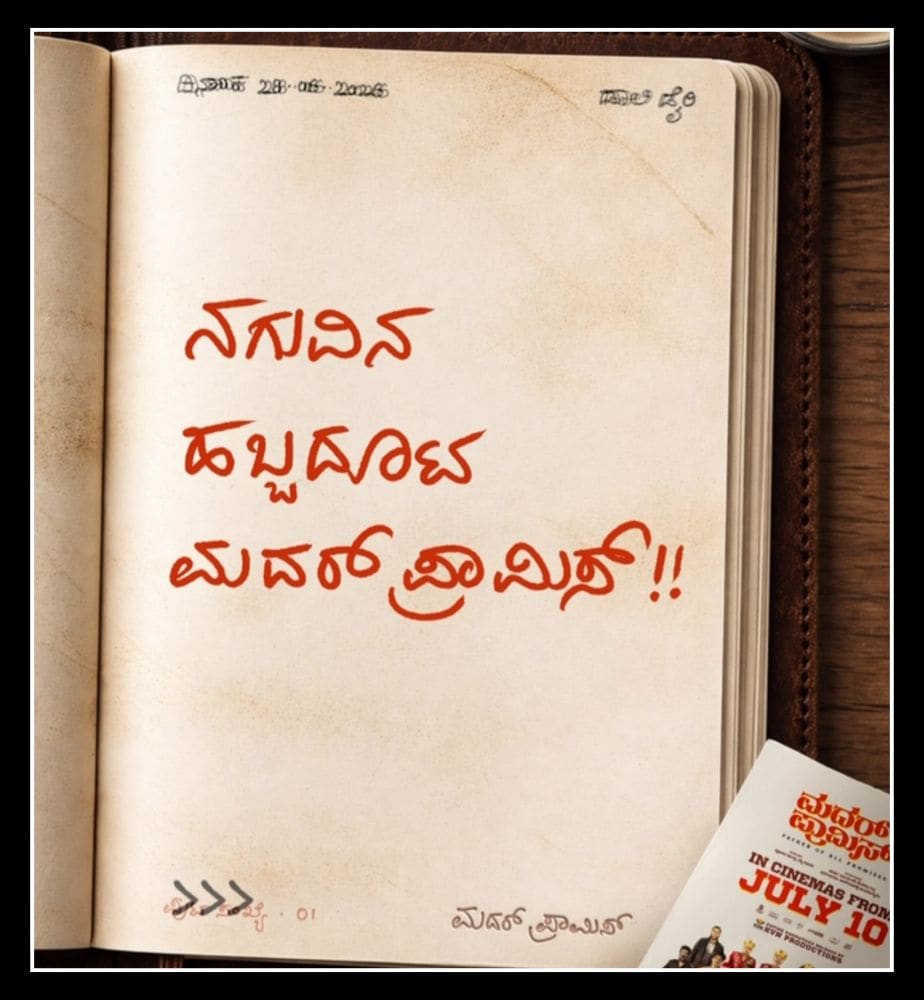 ದಿನಾಂಕ 28-06-2026
ಡಾಲಿ ಡೈರಿ
ನಗುವಿನ
ಹಬ್ಬದೂಟ
ಮದರ್ ಪ್ರಾಮಿಸ್!!
ಪುಟ ಸಂಖ್ಯೆ - 01
ಮದರ್ ಪ್ರಾಮಿಸ್
ಮದರ್
ಪ್ರಾಮಿಸ್
FATHER OF ALL PROMISES
IN CINEMAS FROM
JULY 10
KVN PRODUCTIONS